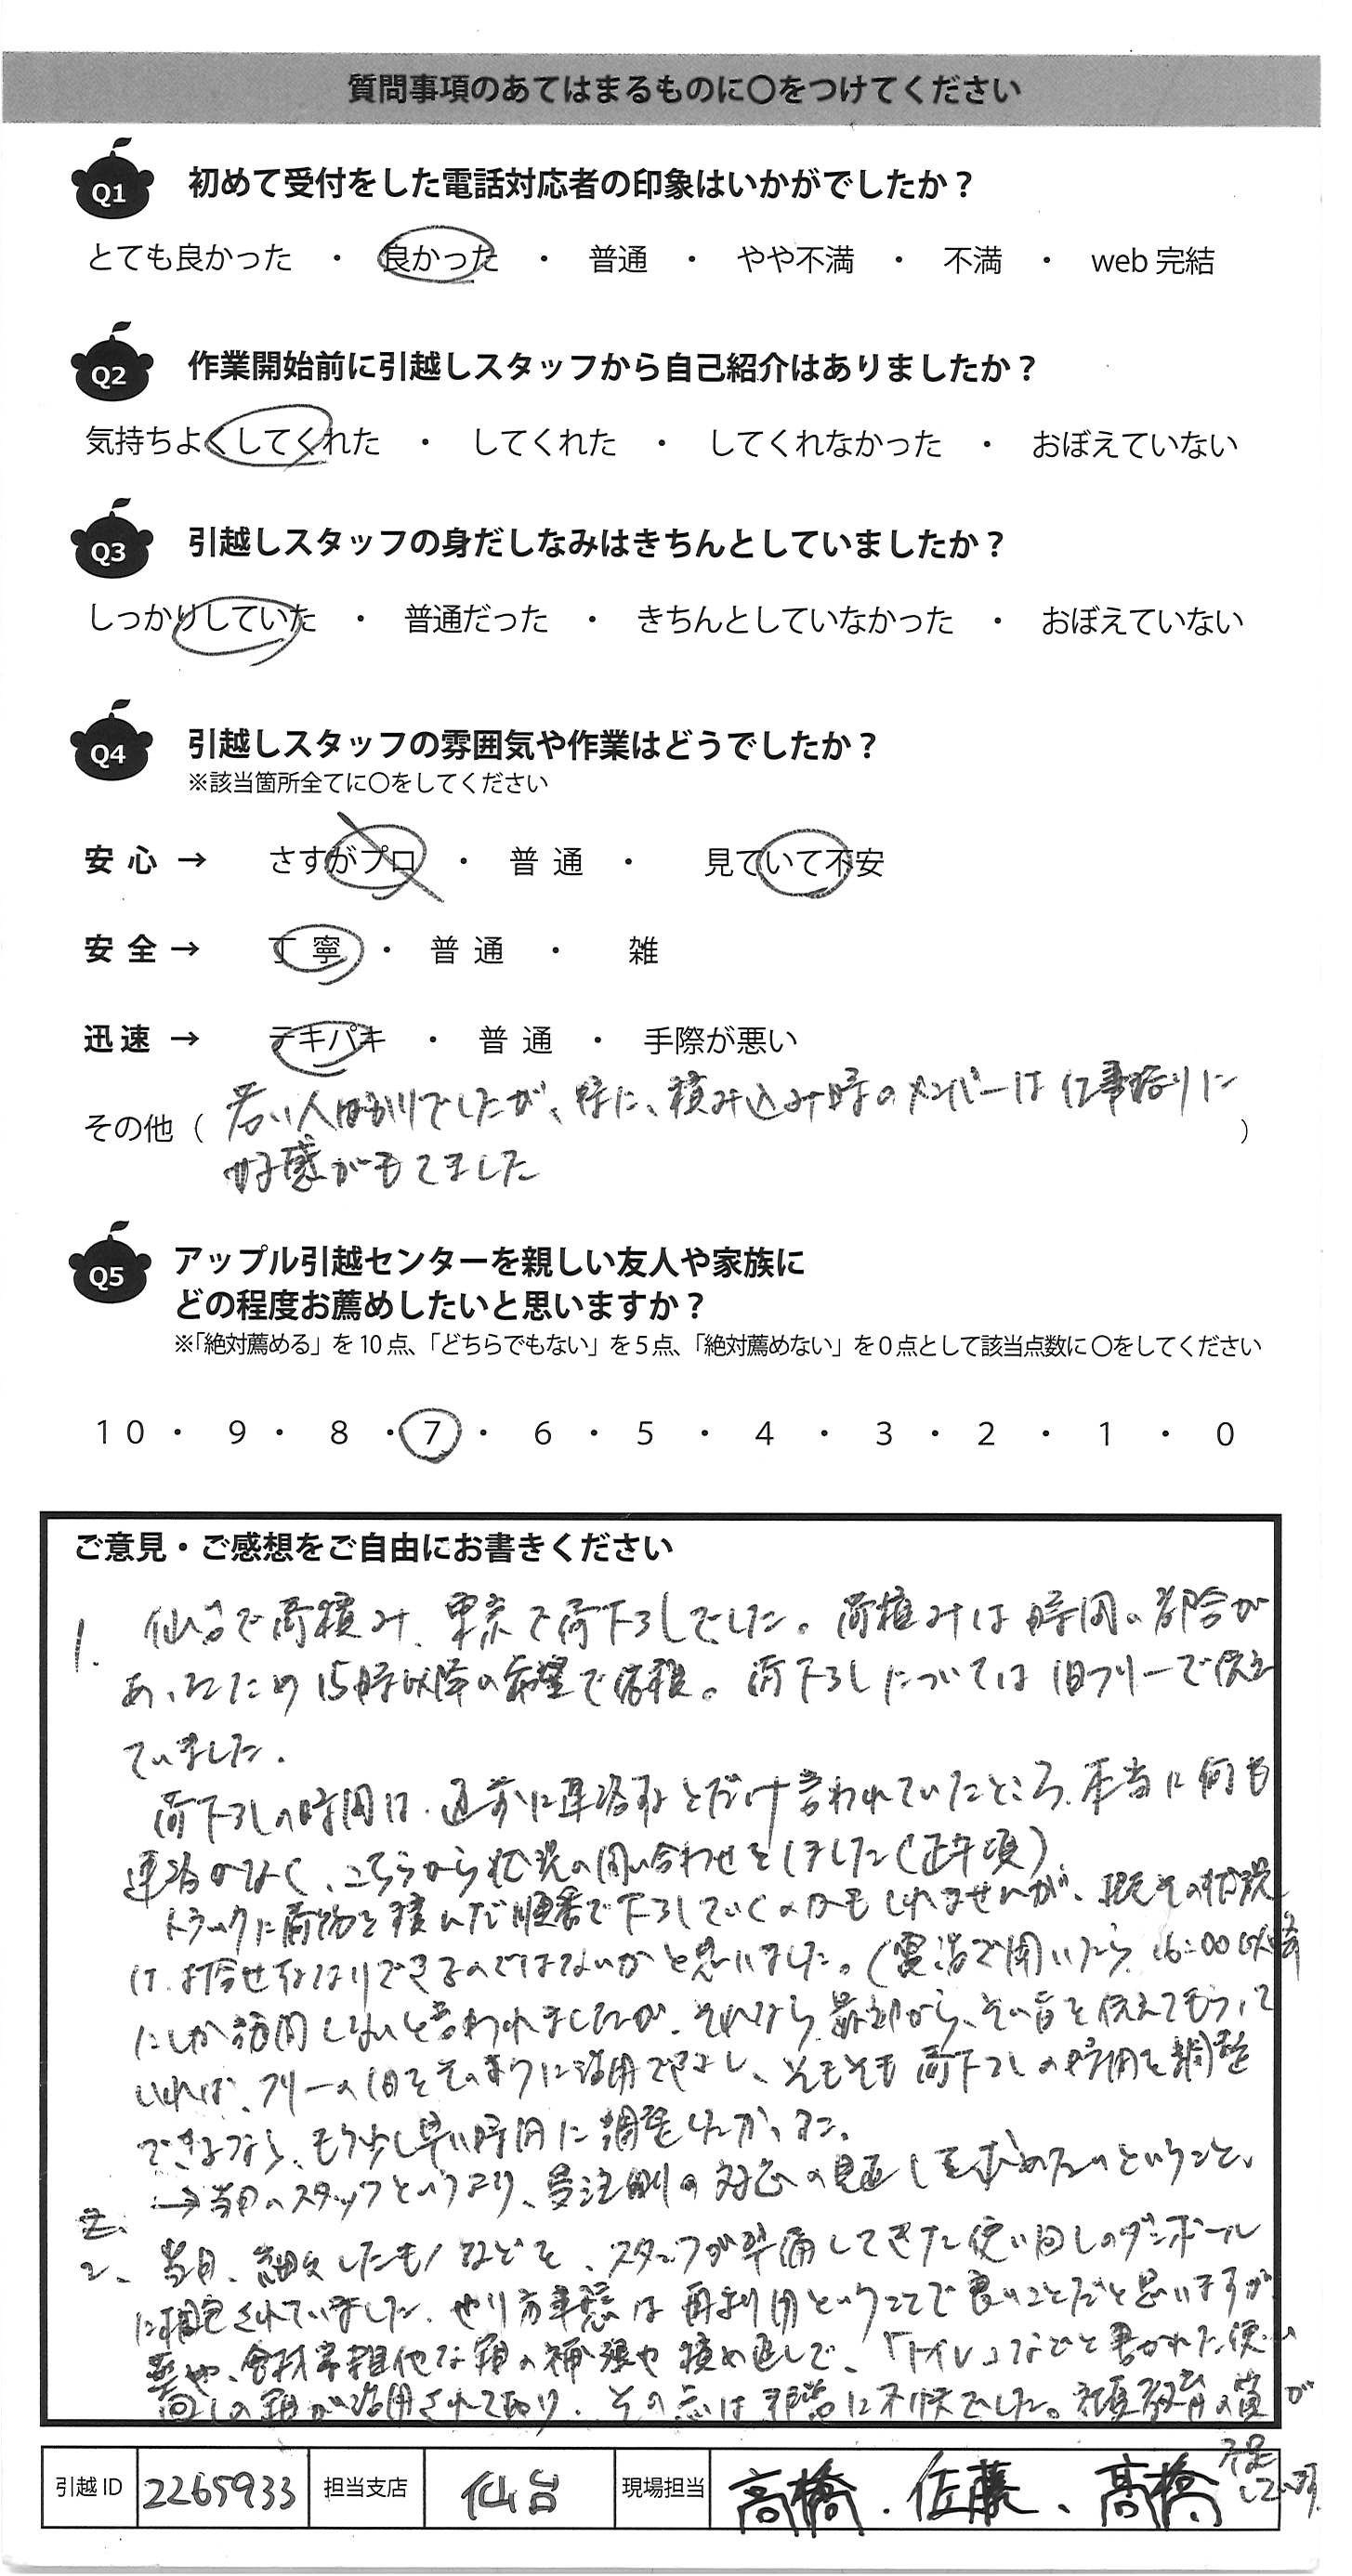 質問事項のあてはまるものに〇をつけてください
Q1 初めて受付をした電話対応者の印象はいかがでしたか？
とても良かった ・ 良かった ・ 普通 ・ やや不満 ・ 不満 ・ web 完結
Q2 作業開始前に引越しスタッフから自己紹介はありましたか？
気持ちよくしてくれた ・ してくれた ・ してくれなかった ・ おぼえていない
Q3 引越しスタッフの身だしなみはきちんとしていましたか？
しっかりしていた ・ 普通だった ・ きちんとしていなかった ・ おぼえていない
Q4 引越しスタッフの雰囲気や作業はどうでしたか？
※該当箇所全てに〇をしてください
安心 → さすがプロ ・ 普通 ・ 見ていて不安
安全 → 丁寧 ・ 普通 ・ 雑
迅速 → テキパキ ・ 普通 ・ 手際が悪い
若い人ばかりでしたが、特に、積み込み時のメンバーは仕事振りに
その他（ ）
好感がもてました
Q5 アップル引越センターを親しい友人や家族に
どの程度お薦めしたいと思いますか？
※「絶対薦める」を 10 点、「どちらでもない」を 5 点、「絶対薦めない」を 0 点として該当点数に 〇をしてください
10 ・ 9 ・ 8 ・ 7 ・ 6 ・ 5 ・ 4 ・ 3 ・ 2 ・ 1 ・ 0
ご意見・ご感想をご自由にお書きください
1. 仙台で荷積み、東京で荷下ろしでした。荷積みは時間の都合が
あったため15時以降の希望で依頼。荷下ろしについては1日フリーで伝え
ていました.
荷下ろしの時間は、直前に連絡するとだけ言われていたところ、本当に何も
連絡がなく、こちらから状況の問い合わせをしました(正午頃)
トラックに荷物を積んだ順番で下ろしていくのかもしれませんが、その状況
は できるのではないかと思いました。(電話で聞いたら、16:00以降
にしか訪問しないと言われましたが、それなら、最初から、その旨を伝えてもらって
いれば、フリーの1日をそのように活用できたし、そもそも荷下ろしの時間を調整
できるなら、もう少し早い時間に調整したかった。
→当日のスタッフというより、受注側の対応の見直しを求めたいということ。
2、当日、 したものなどを、スタッフが準備してきた使い回しのダンボール
に されていました。やり方 は再利用ということで良いことだと思いますが
食材 な箱の や積め直しで、「トイレ」などと書かれた使い
回しの箱が活用されており、その点は非常に不快でした。 の質が
不足しています.
引越 ID 2265933 担当支店 仙台 現場担当 高橋、佐藤、髙橋